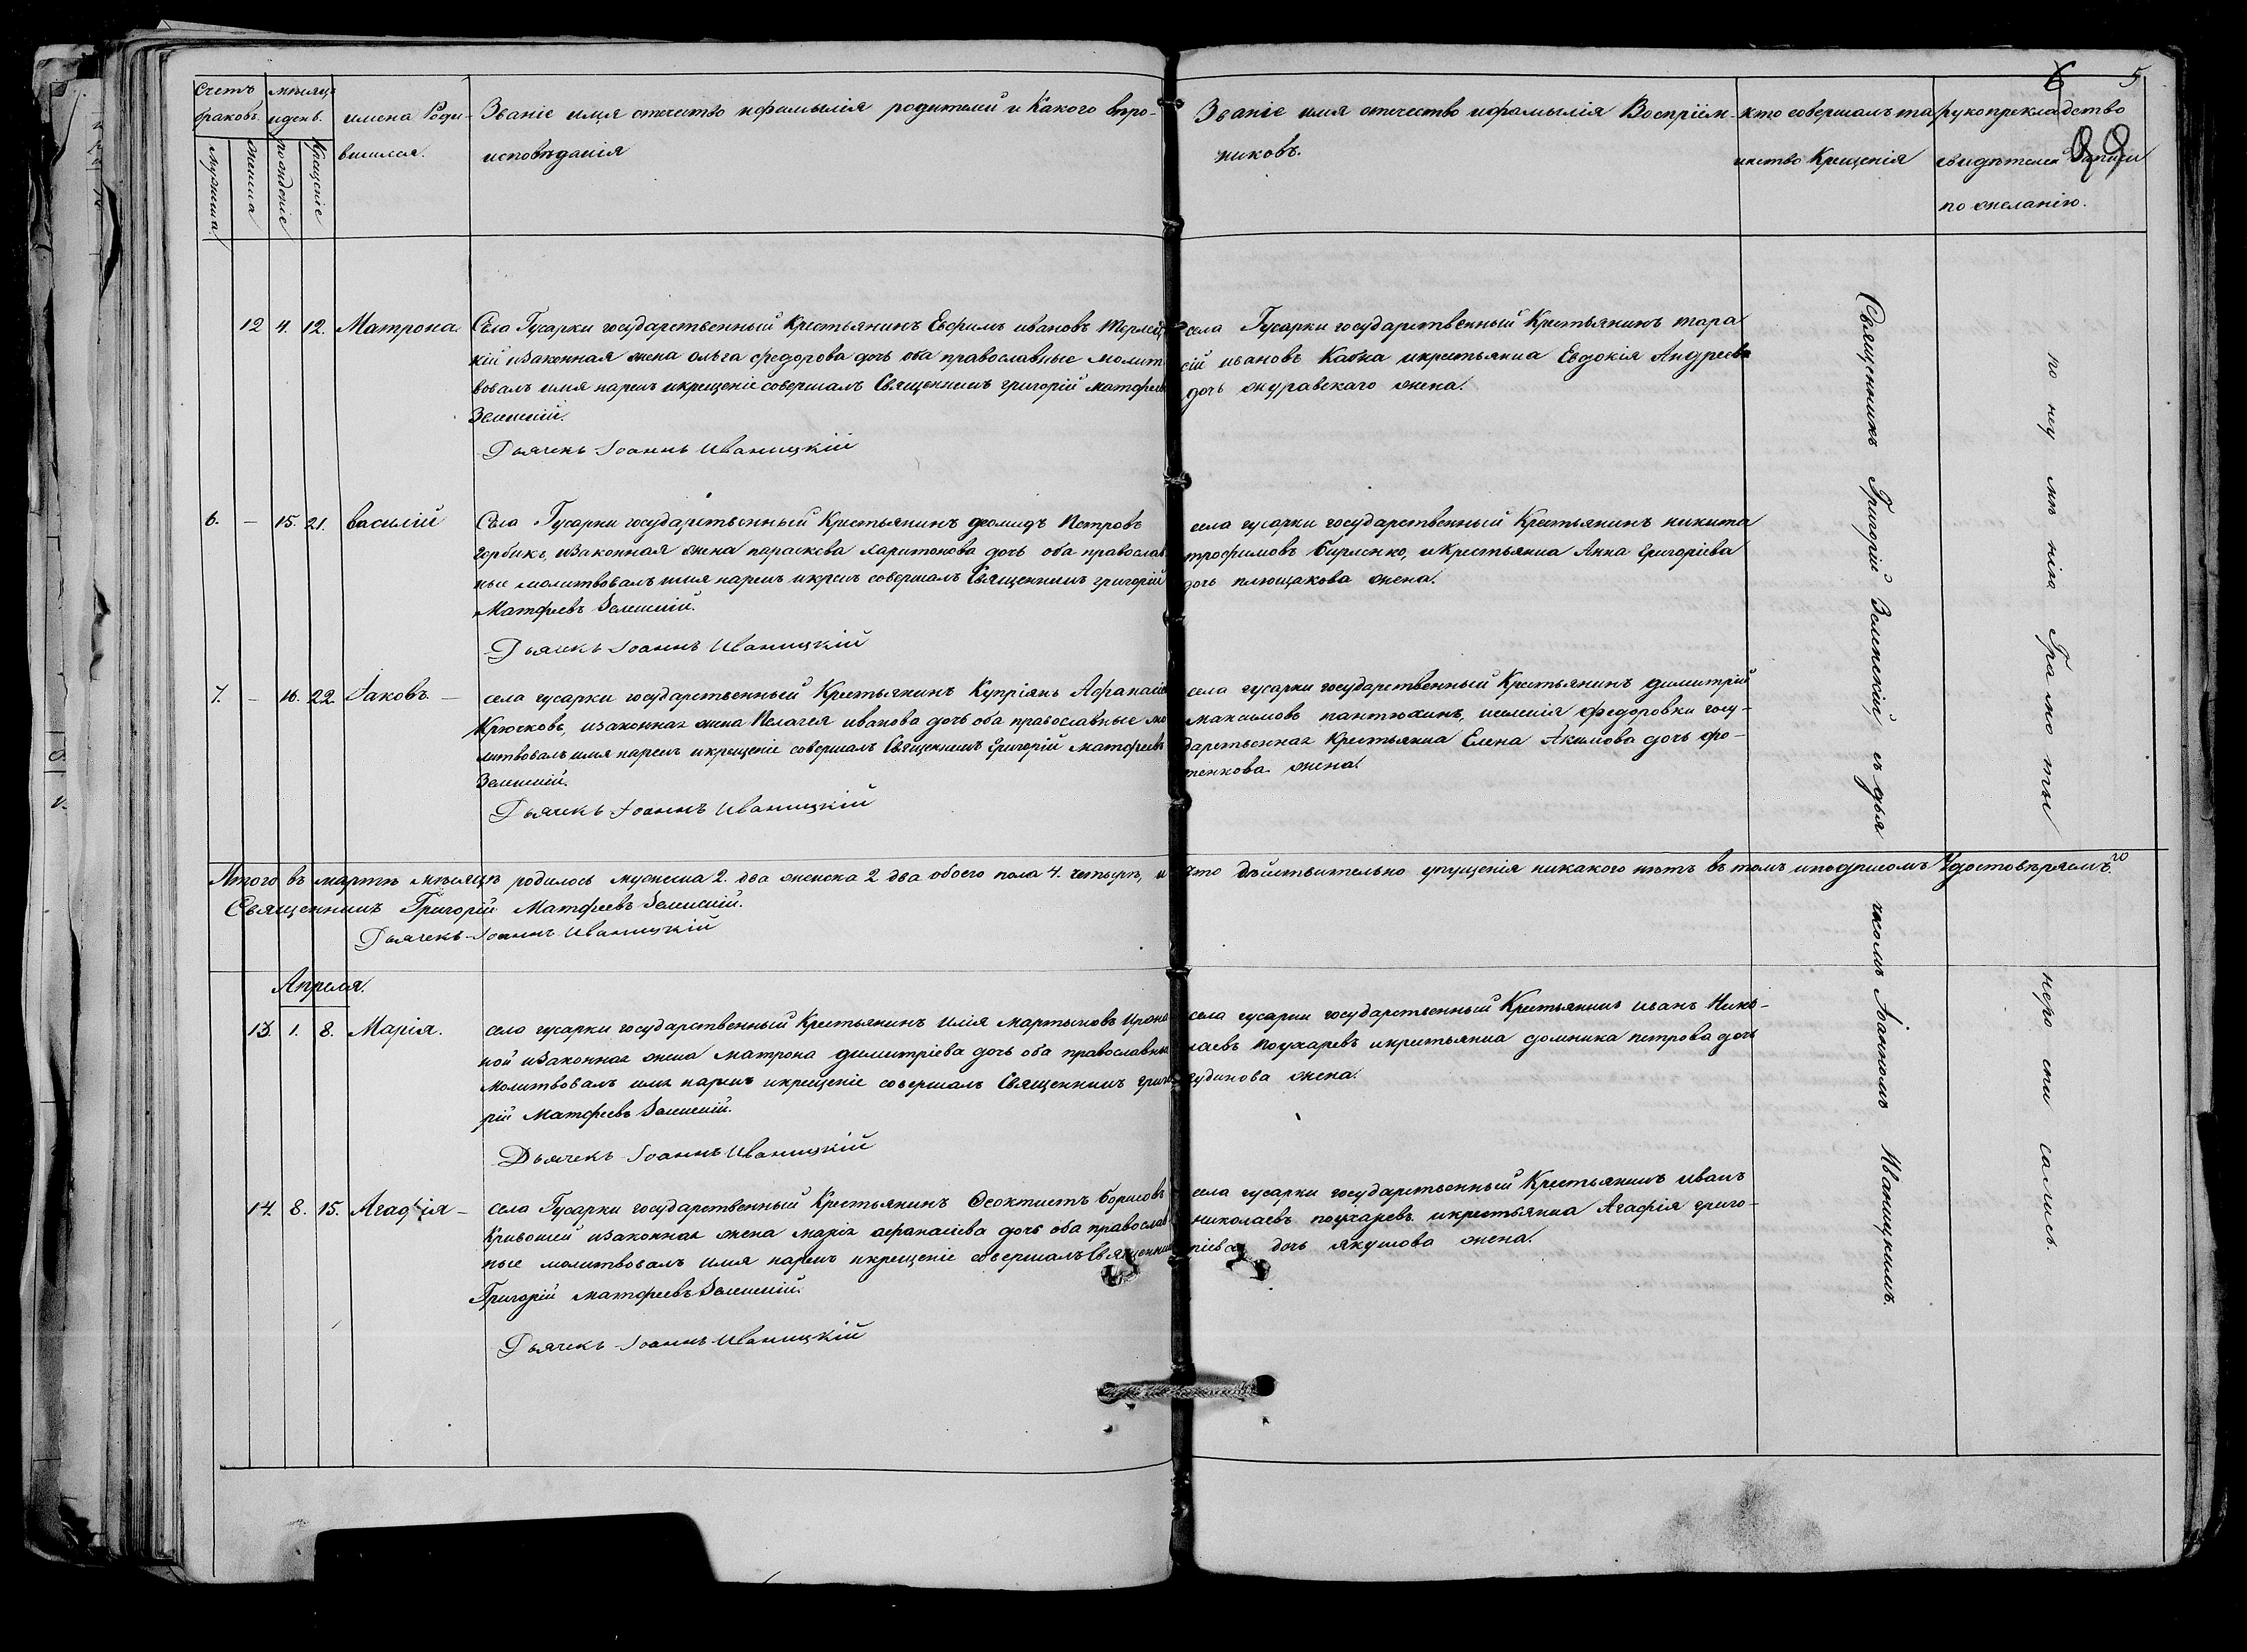 6 5
Счетъ
браковъ.
мѣсяцъ
и день.
имена Роди-
вшихся.
Званіе имя отечество и фамылія родителей и Какого вѣро-
исповѣданія
Званіе имя отечество и фамылія Воспріем-
никовъ.
кто совершалъ та
инство Крещенія
рукоприкладство
свидѣтелей записи
по желанію.
мужеска
женска
рожденіе
Крещеніе
12 4. 12. Матрона.
Села Гусарки государственный крестьянинъ Евфимъ ивановъ
кій и законная жена ольга федорова дочь оба православные молит
вовалъ имя нарекъ и крещеніе совершалъ Священникъ григорій матфеевъ
Зеленскій.
Дьячекъ Іоаннъ Иваницкій
села Гусарки государственный Крестьянинъ тара
сій ивановъ Кабка и крестьянка Евдокія Андреева
дочь журавскаго жена.
6. – 15. 21. василій
Села Гусарки государственный Крестьянинъ діомидъ Петровъ
горбикъ, и законная жена параскева харитонова дочь оба православ
ные молитвовалъ имя нарекъ и крещ совершалъ Священникъ григорій
Матфеевъ Зеленскій.
Дьячекъ Іоаннъ Иваницкій
села гусарки государственный Крестьянинъ никита
трофимовъ бирленко, и крестьянка Анна григоріева
дочь плющакова жена.
7. – 16. 22. Іаковъ –
села гусарки государственный Крестьянинъ Купріянъ Афанасіев
Крюсковъ, и законная жена Пелагея иванова дочь оба православные мо
литвовалъ имя нарекъ и крещеніе совершалъ Священникъ Григорій матфеевъ
Зеленскій.
Дьячекъ Іоаннъ Иваницкій
села гусарки государственный Крестьянинъ димитрій
максимовъ пантюхинъ, и селенія федоровки госу-
дарственная Крестьянка Елена Акимова дочь фо-
менкова жена.
Итого въ мартѣ мѣсяцѣ родилось мужеска 2. два женска 2 два обоего пола 4. четыре, и что дѣйствительно упущенія никакого нѣтъ въ томъ и подписомъ Удостовѣряемъ.
Священникъ Григорій Матфеевъ Зеленскій.
Дьячекъ Іоаннъ Иваницкій
Апреля.
13. 1. 8. Марія.
село гусарки государственный Крестьянинъ Илія мартыновъ
ной и законная жена матрона димитріева дочь оба православные
молитвовалъ имя нарекъ и крещеніе совершалъ Священникъ григо
рій Матфеевъ Зеленскій.
Дьячекъ Іоаннъ Иваницкій
села гусарки государственный Крестьянинъ иванъ Нико-
лаевъ поухаревъ и крестьянка домника петрова дочь
гудинова жена.
14. 8. 15. Агафія –
села Гусарки государственный Крестьянинъ Феоктистъ борисовъ
Кривошей и законная жена марія афанасіева дочь оба православ
ные молитвовалъ имя нарекъ и крещеніе совершалъ Священникъ
Григорій матфеевъ Зеленскій.
Дьячекъ Іоаннъ Иваницкій
села гусарки государственный Крестьянинъ иванъ
николаевъ поухаревъ и крестьянка Агафія григо-
ріева дочь якушова жена.
Священникъ Григорій Зеленскій съ дья чкомъ Іоанномъ Иваницкимъ.
по неу мѣ нію Гра мо ты го неро спи сались.